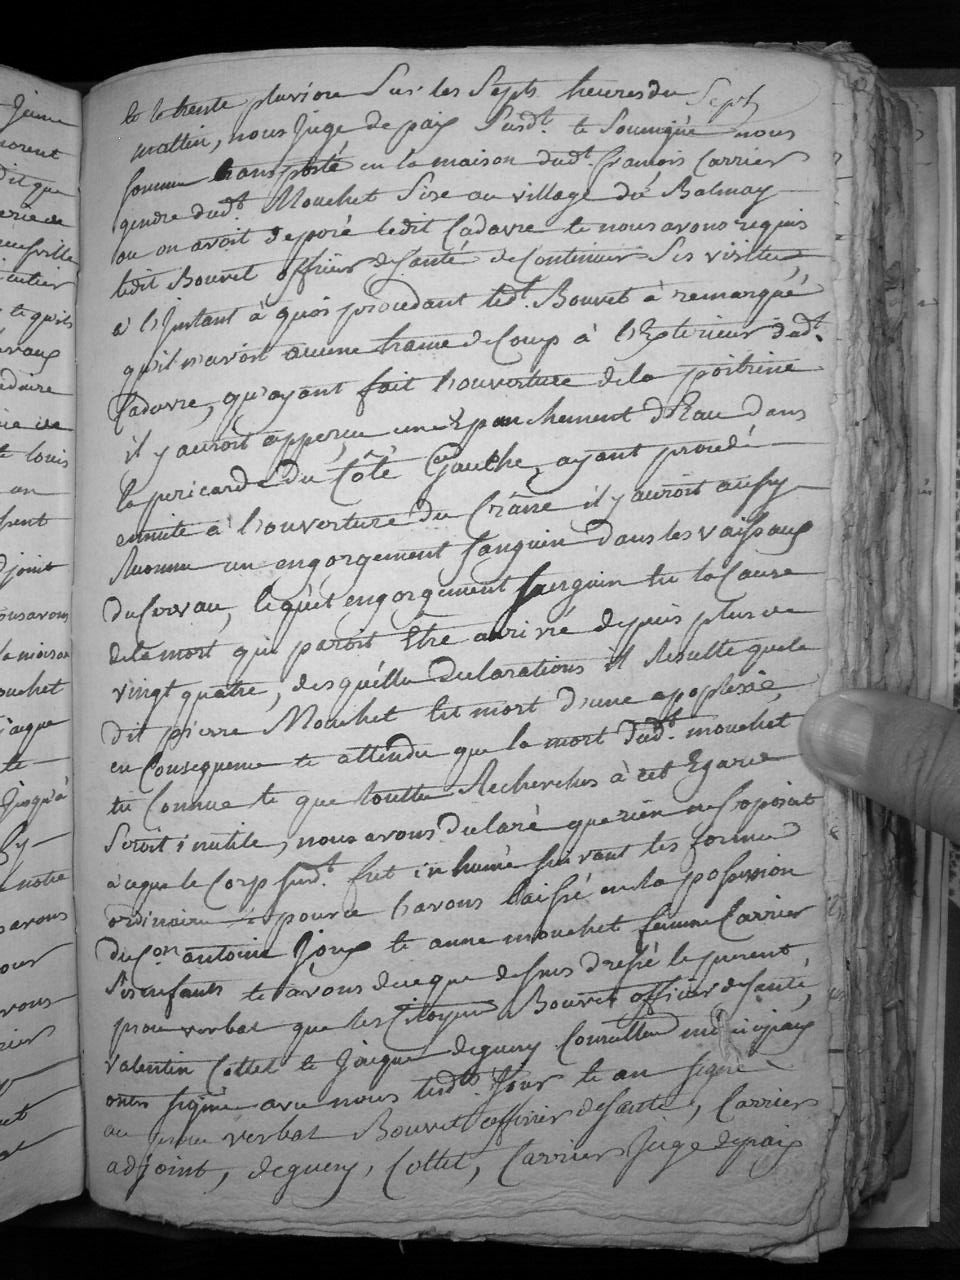 et le trente pluviose Sur les Sept heures du Sept
mattin, nous Juge de paix Susdt. et Soussigné nous
somme transporté en la maison dudt. francois Carrier
gendre dudt. Mouchet Sise au village du Balmay
ou on avoit deposé ledit Cadavre et nous avons requis
ledit Bouvet officier de Santé de Continuer Ses visittes
a l'Instant à quoi procedant ledt. Bouvet à remarqué
qu'il n'avoit aucune trasse de Coup à l'Exterieur dudt.
Cadavre, qu'ayant fait l'ouverture de la poitrine
il y auroit apperçu un Epanchement d'Eau dans
le pericarde du Côté Gauche, ayant procedé
ensuite à l'ouverture du Crâne il y auroit aussy
Reconnu un engorgement Sanguin dans les vaissaux
du Cervau, lequel engorgement Sanguin Est la Cause
de la mort qui paroit Etre arrivé depuis plus de
vingt quatre, desquelles declarations il Resulte que le
dit pierre Mouchet Est mort d'une apoplexie,
en Consequence et attendu que la mort dudt. mouchet
Est Connue et que touttes Recherches à cet Egard
Seroit inutile, nous avons declaré que rien ne S'oposoit
à ceque le Corp susdt. fut inhumé suivant les formes
ordinaire & pource l'avons laissé en la possession
du Con. antoine Joux et anne mouchet femme Carrier
Ses enfants et avons de ceque dessus dressé le present
procu verbal que les Citoyens Bouvet officier de Santé,
valentin Collet et Jacque deguery Conseillers municipaux
onts signés avec nous lesdts. Jour et an signé
au procu verbal Bouvet officier de Santé, Carrier
adjoint, deguery, Collet, Carrier Juge de paix